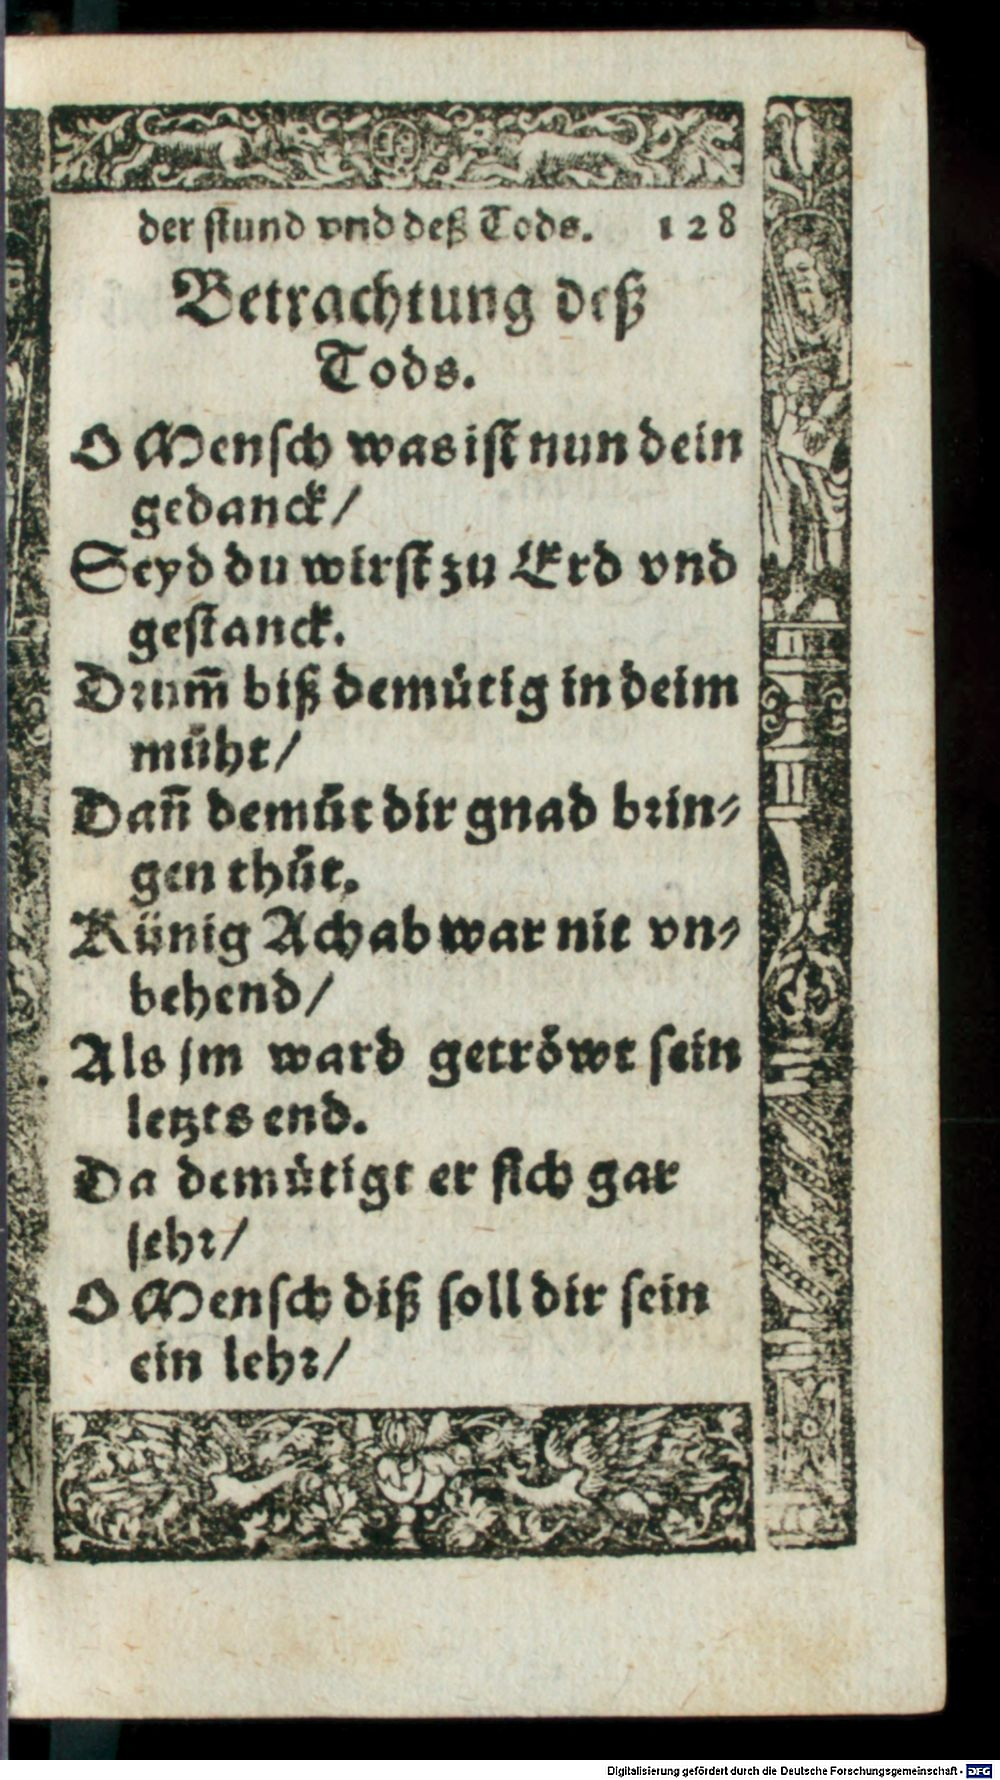 der stund vnd deß Tods. 128
Betrachtung deß
Tods.
O Mensch was ist nun dein
gedanck/
Seyd du wirst zu Erd vnd
gestanck.
Drum̄ biß demütig in deim
müht/
Dan̄ demůt dir gnad brin⸗
gen thůt.
Künig Achab war nit vn⸗
behend/
Als jm ward getröwt sein
letzts end.
Da demütigt er sich gar
sehr/
O Mensch diß soll dir sein
ein lehr/
Digitalisierung gefördert durch die Deutsche Forschungsgemeinschaft - DFG